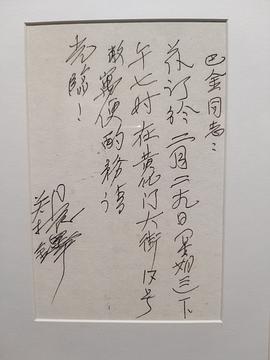 巴金同志：
兹订於二月二九日(星期三)下
午七时在黄化门大街17号
敝寓便酌务请
光临！
郑振铎